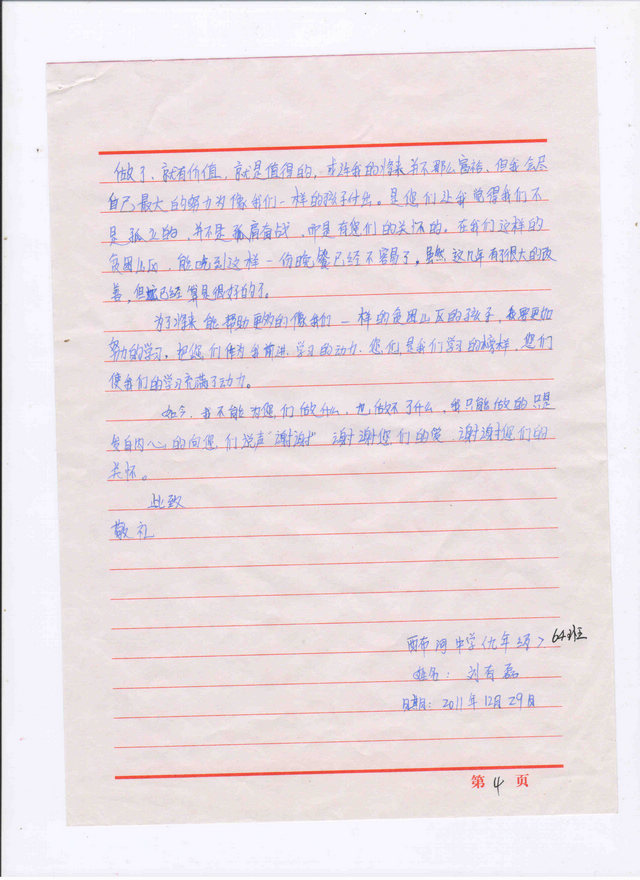 做了、就有价值，就是值得的，或许我的将来并不那么富裕、但我会尽
自己最大的努力为像我们一样的孩子付出。是您们让我觉得我们不
是孤立的、并不是孤肩奋战、而是有您们的关怀的。在我们这样的
贫困山区、能吃到这样一份晚餐已经不容易了。虽然这几年有了很大的改
善，但 已经算是很好的了。
为了将来能帮助更多的像我们一样的贫困山区的孩子，我要更加
努力的学习，把您们作为我前进、学习的动力，您们是我们学习的榜样、您们
使我们的学习充满了动力。
如今，我不能为您们做什么，也做不了什么，我只能做的只是
发自内心的向您们说声“谢谢” 谢谢您们的爱、谢谢您们的
关怀。
此致
敬礼
西布河中学（九年级） 64班
姓名：刘有磊
日期：2011年12月29日
第 4 页